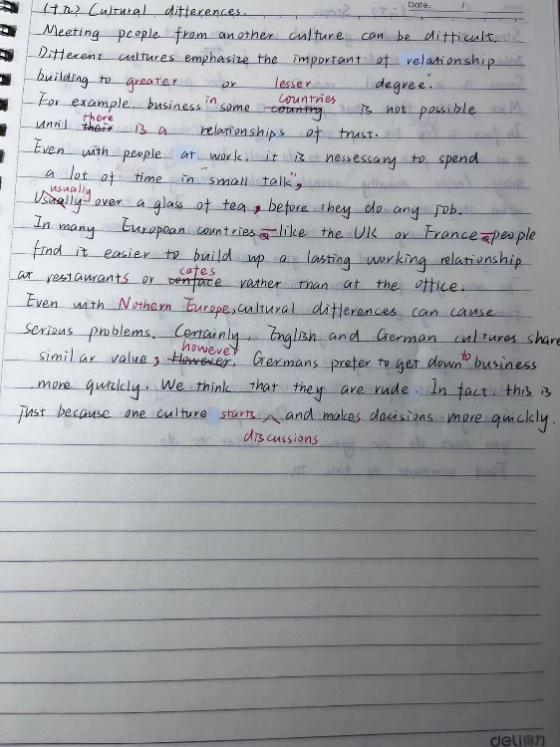 (十五) Cultural differences.
Date. /
Meeting people from another culture can be difficult.
Different cultures emphasize the important of relationship
building to greater or lesser degree.
For example, business in some countries country is not possible
until there their is a relationships of trust.
Even with people at work, it is nessessany to spend
a lot of time in "small talk",
usually Usually over a glass of tea, before they do any job.
In many European countries – like the UK or France – people
find it easier to build up a lasting working relationship
at restaurants or cafes conface rather than at the office.
Even with Nothern Europe, cultural differences can cause
serious problems. Certainly, English and German cultures share
similar value, however However, Germans prefer to get down to business
more quickly. We think that they are rude. In fact, this is
just because one culture starts ^ and makes decisions more quickly.
discussions
deli得力